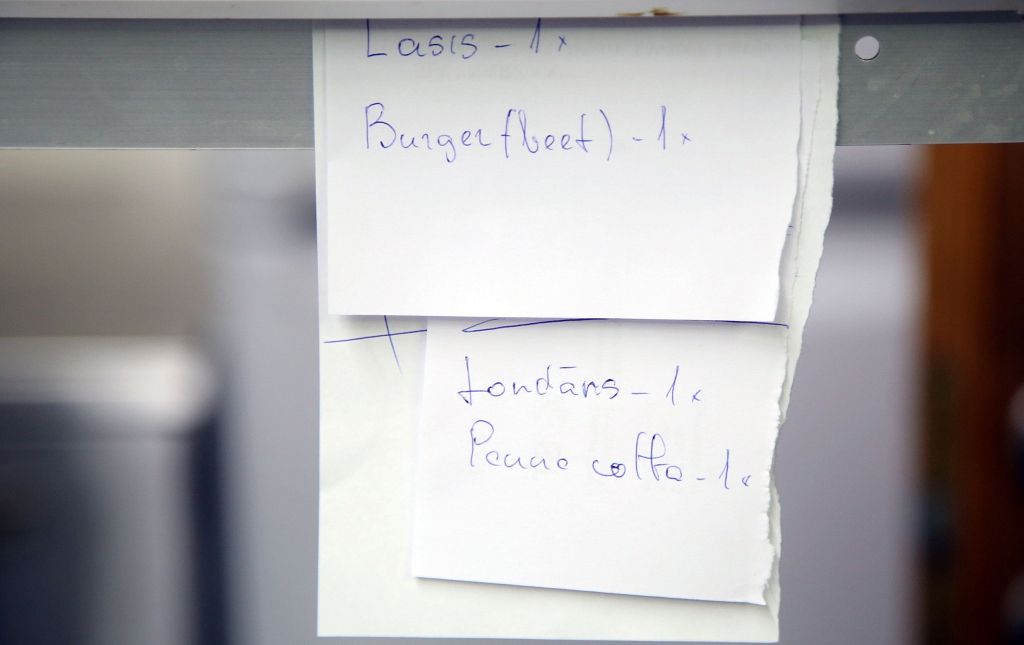 Lasis - 1x
Burger (beef) - 1x
Fondāns - 1x
Panna cotta - 1x